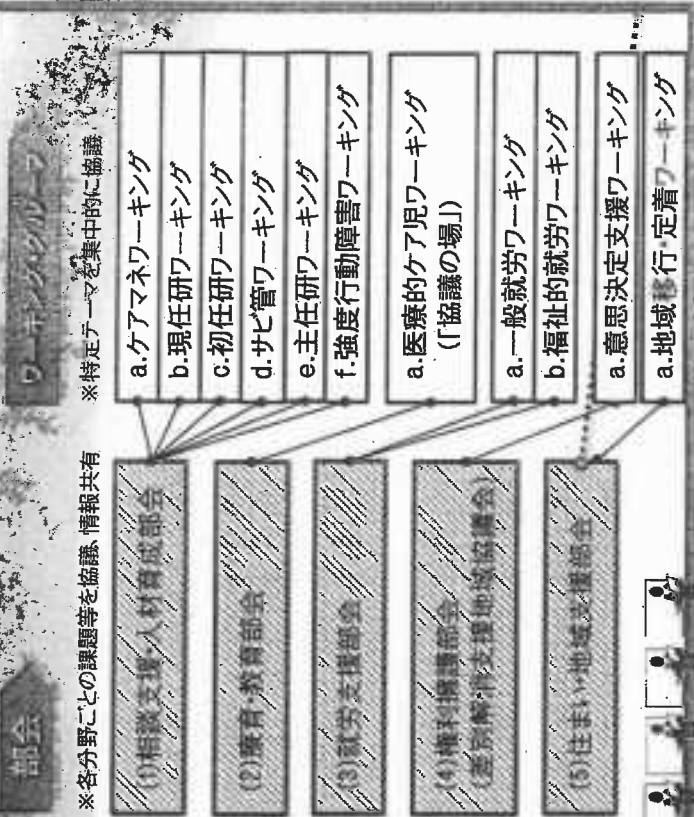 部会
※各分野ごとの課題等を協議、情報共有
(1)相談支援・人材育成部会
(2)療育・教育部会
(3)就労支援部会
(4)権利擁護部会
(差別解消支援地域協議会)
(5)住まい・地域支援部会
ワーキンググループ
※特定テーマを集中的に協議
a.ケアマネワーキング
b.現任研ワーキング
c.初任研ワーキング
d.サビ管ワーキング
e.主任研ワーキング
f.強度行動障害ワーキング
a.医療的ケア児ワーキング
(「協議の場」)
a.一般就労ワーキング
b.福祉的就労ワーキング
a.意思決定支援ワーキング
a.地域移行・定着ワーキング